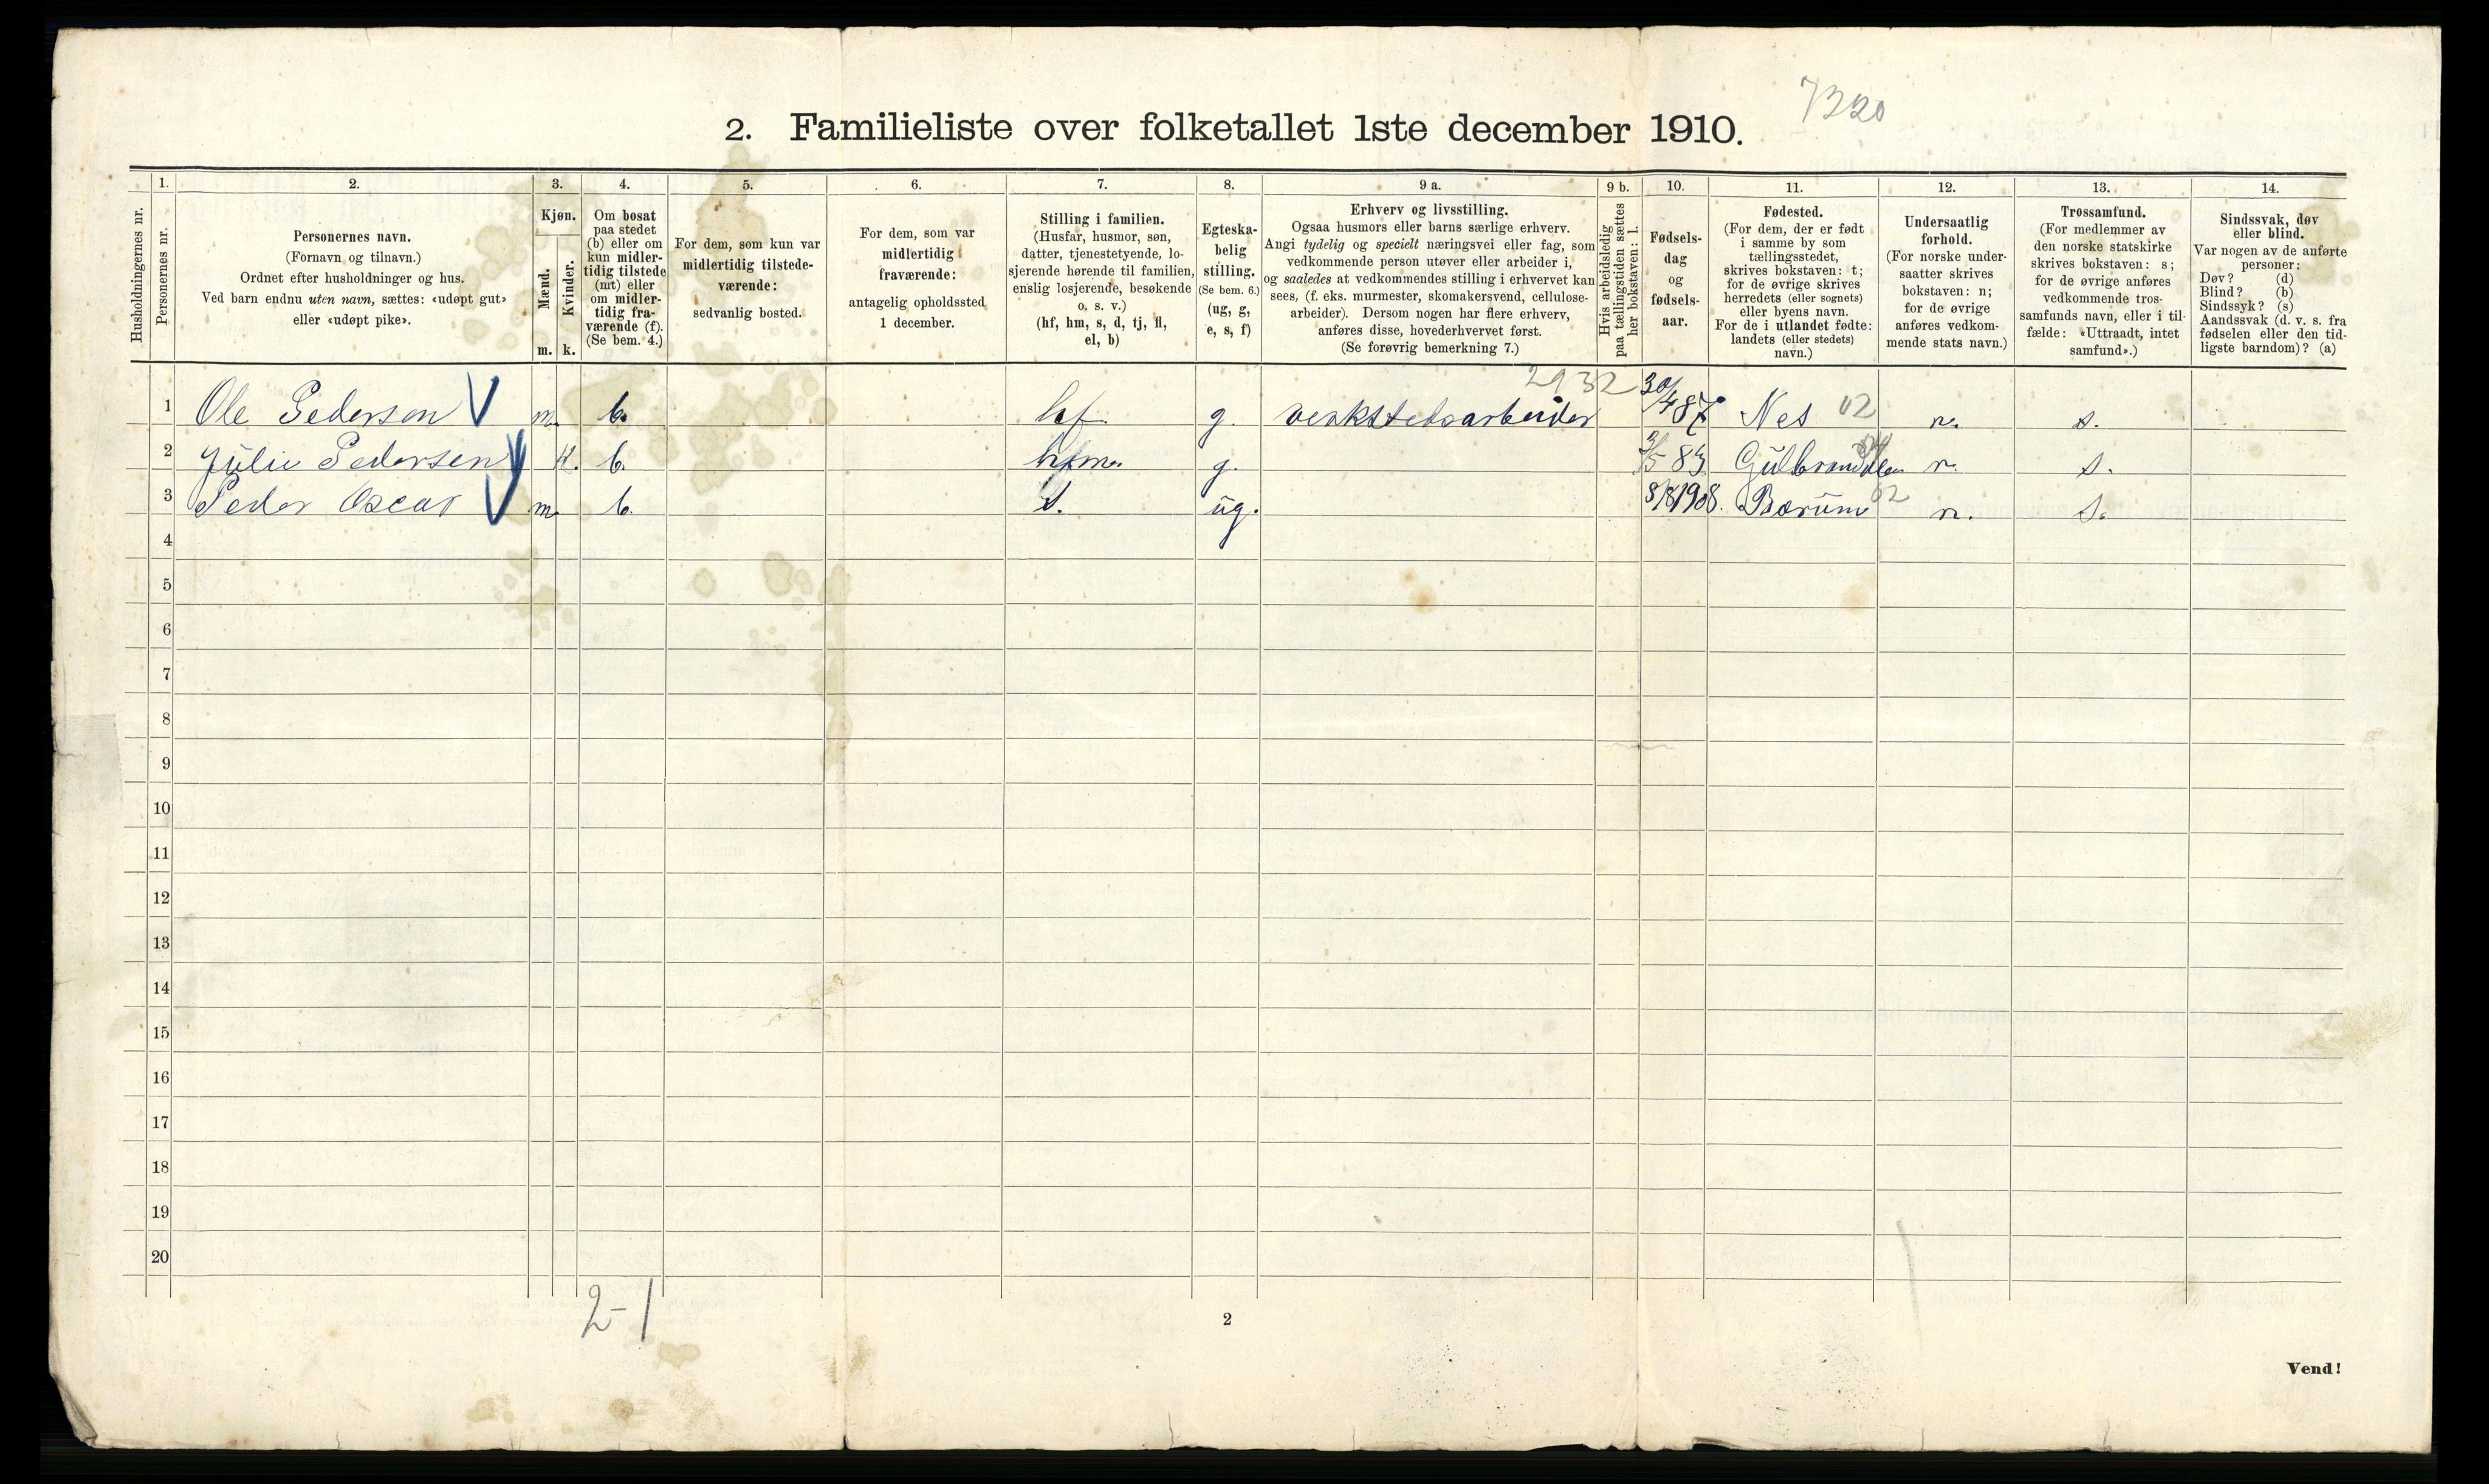 7320
2. Familieliste over folketallet 1ste december 1910.
Husholdningernes nr.
1.
Personernes nr.
2.
Personernes navn.
(Fornavn og tilnavn.)
Ordnet efter husholdninger og hus.
Ved barn endnu uten navn, sættes: «udøpt gut»
eller «udøpt pike».
3.
Kjøn.
Mænd.
Kvinder.
m. k.
4.
Om bosat
paa stedet
(b) eller om
kun midler-
tidig tilstede
(mt) eller
om midler-
tidig fra-
værende (f).
(Se bem. 4.)
5.
For dem, som kun var
midlertidig tilstede-
værende:
sedvanlig bosted.
6.
For dem, som var
midlertidig
fraværende:
antagelig opholdssted
1 december.
7.
Stilling i familien.
(Husfar, husmor, søn,
datter, tjenestetyende, lo-
sjerende hørende til familien,
enslig losjerende, besøkende
o. s. v.)
(hf, hm, s, d, tj, fl,
el, b)
8.
Egteska-
belig
stilling.
(Se bem. 6.)
(ug, g,
e, s, f)
9 a.
Erhverv og livsstilling.
Ogsaa husmors eller barns særlige erhverv.
Angi tydelig og specielt næringsvei eller fag, som
vedkommende person utøver eller arbeider i,
og saaledes at vedkommendes stilling i erhvervet kan
sees, (f. eks. murmester, skomakersvend, cellulose-
arbeider). Dersom nogen har flere erhverv,
anføres disse, hovederhvervet først.
(Se forøvrig bemerkning 7.)
9 b.
Hvis arbeidsledig
paa tællingstiden sættes
her bokstaven: l.
10.
Fødsels-
dag
og
fødsels-
aar.
11.
Fødested.
(For dem, der er født
i samme by som
tællingsstedet,
skrives bokstaven: t;
for de øvrige skrives
herredets (eller sognets)
eller byens navn.
For de i utlandet fødte:
landets (eller stedets)
navn.)
12.
Undersaatlig
forhold.
(For norske under-
saatter skrives
bokstaven: n;
for de øvrige
anføres vedkom-
mende stats navn.)
13.
Trossamfund.
(For medlemmer av
den norske statskirke
skrives bokstaven: s;
for de øvrige anføres
vedkommende tros-
samfunds navn, eller i til-
fælde: «Uttraadt, intet
samfund».)
14.
Sindssvak, døv
eller blind.
Var nogen av de anførte
personer:
Døv? (d)
Blind? (b)
Sindssyk? (s)
Aandssvak (d. v. s. fra
fødselen eller den tid-
ligste barndom)? (a)
2932
1 Ole Pedersen V m. b. hf. g. verkstedsarbeider 30/4 87 Nes 02 n. s.
2 Julie Pedersen V k. b. hm. g. /5 83 Gulbrandsdalen n. s.
3 Peder Oscar V m. b. s. ug. 8/8 1908. Bærum 02 n. s.
4
5
6
7
8
9
10
11
12
13
14
15
16
17
18
19
20
2-1
2
Vend!